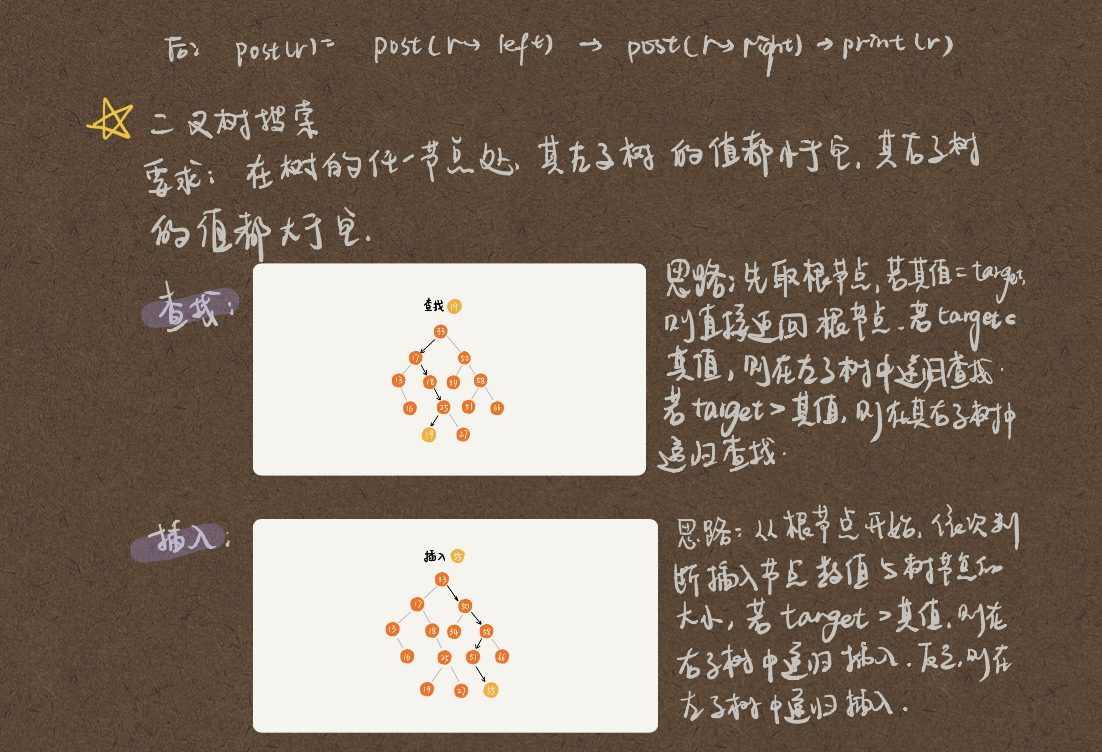 后: post(r)= post(r→left) → post(r→right)→print(r)
二叉树搜索
要求: 在树的任一节点处, 其左子树的值都小于它, 其右子树
的值都大于它.
查找:
查找 19
33
17 50
13 18 34 58
16 25 51 66
19 27
思路: 先取根节点, 若其值=target,
则直接返回根节点. 若target<
其值, 则在左子树中递归查找.
若target>其值, 则在其右子树中
递归查找.
插入:
插入 55
33
17 50
13 18 34 58
16 25 51 66
19 27 55
思路: 从根节点开始, 依次判
断插入节点数值与树节点的
大小, 若target>其值, 则在
右子树中递归插入. 反之, 则在
左子树中递归插入.